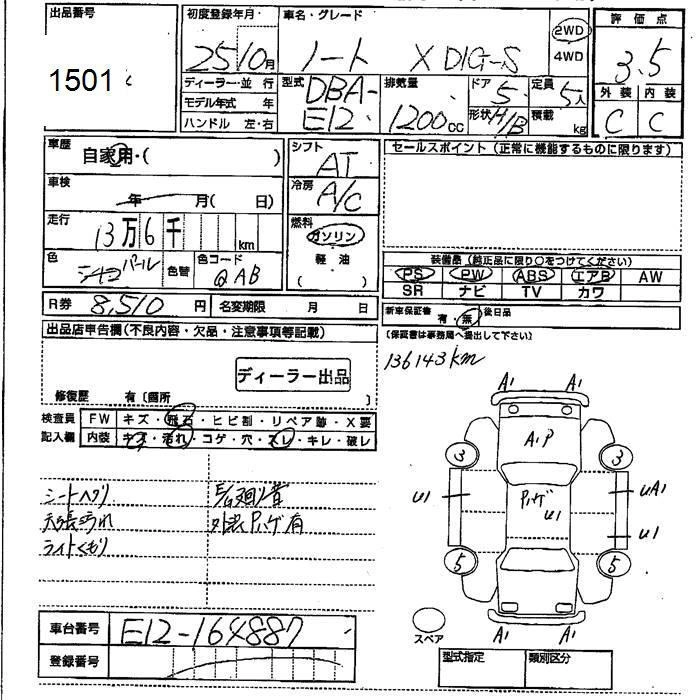 出品番号
1501
初度登録年月
25/10月
ディーラー・並行
モデル年式 年
ハンドル 左・右
車名・グレード
ノート X DIG-S
2WD
4WD
型式
DBA-
E12
排気量
1200cc
ドア
5
形状 H/B
定員
5人
積載
kg
評価点
3.5
外装 内装
C C
車歴
自家用・( )
シフト
AT
車検
年 月( 日)
冷房
A/C
走行
13万6千 km
燃料
ガソリン
軽油
( )
色
パール
色替
色コード
QAB
セールスポイント(正常に機能するものに限ります)
装備品(純正品に限り○をつけてください)
PS PW ABS エアB AW
SR ナビ TV カワ
R券 8,510 円 名変期限 月 日
新車保証書 有・無 後日品
(保証書は事務局へ提出して下さい)
136143km
出品店申告欄(不良内容・欠品・注意事項等記載)
ディーラー出品
修復歴 有〔箇所 〕
検査員
記入欄
FW キズ・飛石・ヒビ割・リペア跡・X要
内装 キズ・汚れ・コゲ・穴・スレ・キレ・破レ
シートヘタリ
天張汚れ
ライトくもり
外装Pハゲ有
A1 A1
A1P
3 3
U1 Pハゲ U1 UA1
U1
5 5
A1 A1
スペア
車台番号 E12-164887
登録番号
型式指定 類別区分